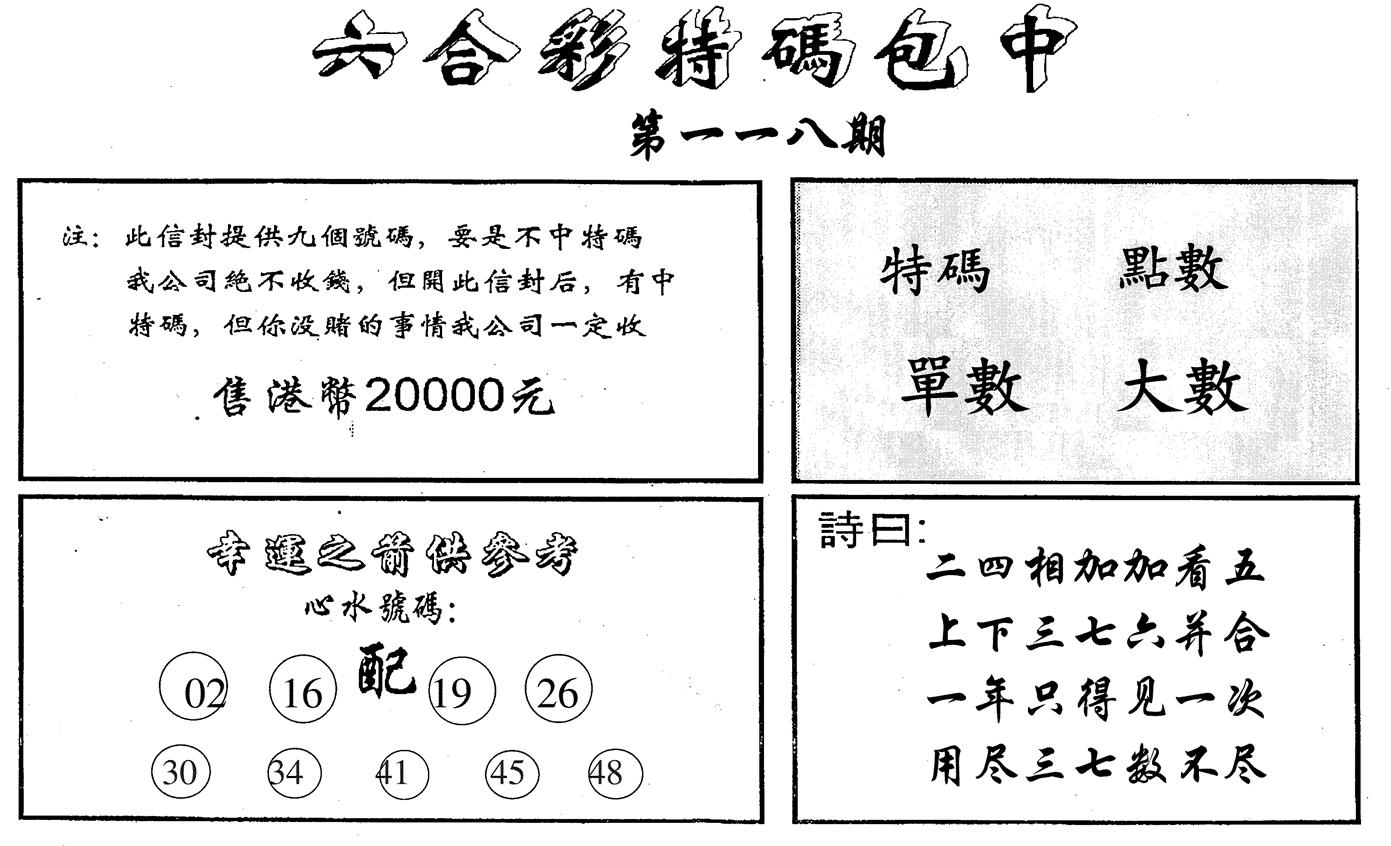 六合彩特碼包中
第一一八期
注：此信封提供九個號碼，要是不中特碼
我公司絶不收錢，但開此信封后，有中
特碼，但你没賭的事情我公司一定收
售港幣20000元
特碼 點數
單數 大數
幸運之箭供參考
心水號碼：
02 16 配 19 26
30 34 41 45 48
詩曰：
二四相加加看五
上下三七六并合
一年只得见一次
用尽三七数不尽